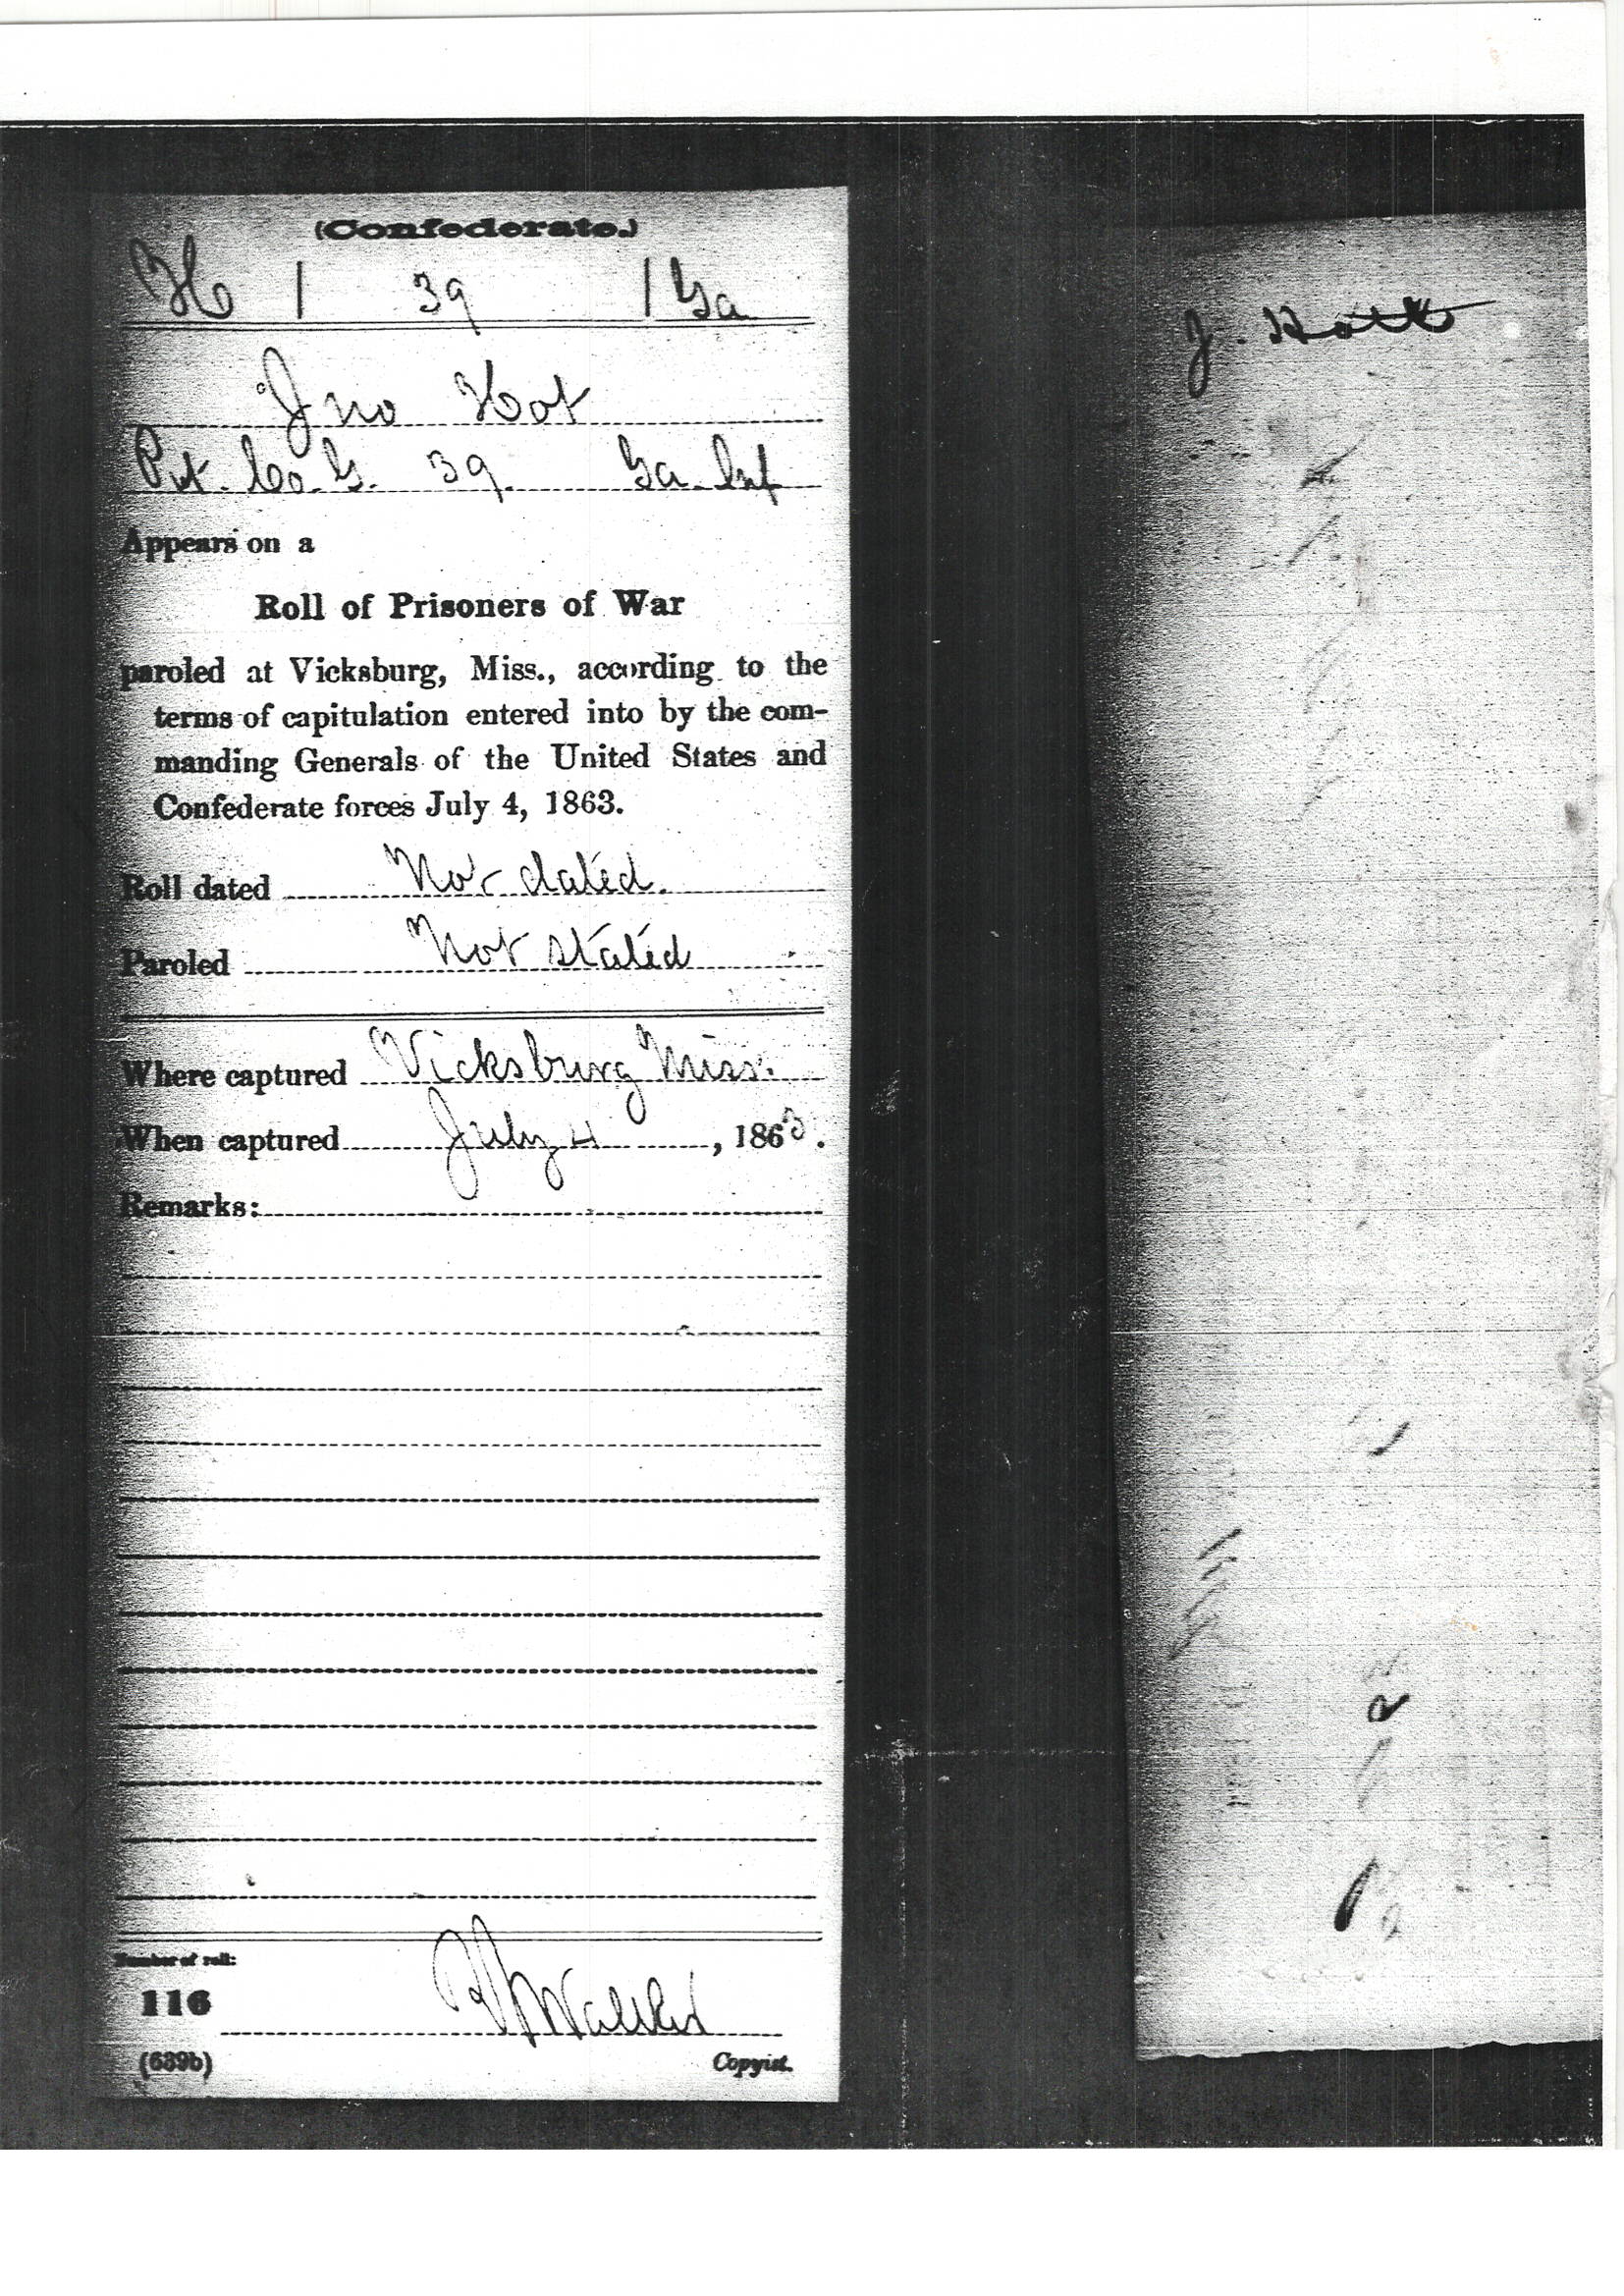 (Confederate.)
H | 39 | Ga
Jno Hot
Pvt. Co. G. 39. Ga. Inf
Appears on a
Roll of Prisoners of War
paroled at Vicksburg, Miss., according to the
terms of capitulation entered into by the com-
manding Generals of the United States and
Confederate forces July 4, 1863.
Roll dated Not dated.
Paroled Not stated
Where captured Vicksburg Miss.
When captured July 4, 1863.
Remarks:
Number of roll:
116
(639b) Copyist.
J. Hott